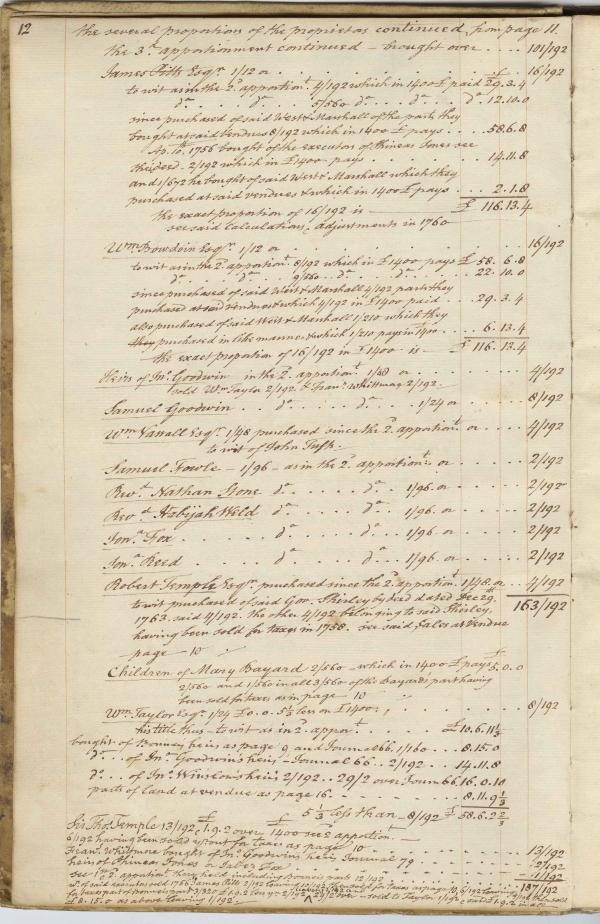 12
the several proportions of the proprietors continued from page 11.
the 3d. apportionment continued – brought over .... 101/192
James Pitts Esqr. 1/12 or . . . . . . 16/192
to wit as in the 2d. apportiont. 4/192 which in 1400£ paid £29.3.4
do. . . . do. . . . 5/560 do. . . . do. . . . do. 12.10.0
since purchased of said West & Marshall of the part they
bought at said Vendue 8/192 which in 1400£ pays . . . 58.6.8
1756 bought of the executors of Phineas Jones see
2/192 which in £1400 pays . . . . 14.11.8
and 1/672 he bought of said West & Marshall which they
purchased at said vendue & which in 1400£ pays . . . 2.1.8
the exact proportion of 16/192 is — £ 116.13.4
see said Calculations. Adjustments in 1760
Wm. Bowdoin Esqr. 1/12 or . . . . . . 16/192
to wit as in the 2d. apportiont. 8/192 which in £1400 pays £58.6.8
do. . . . do. . . . 9/560 do. . . . do. . . . 22.10.0
since purchased of said West & Marshall 4/192 part they
purchased at said vendue & which 4/192 in £1400 paid . . . 29.3.4
also purchased of said West & Marshall 1/210 which they
they purchased in like manner & which 1/210 pays in 1400 . . . 6.13.4
the exact proportion of 16/192 in £1400 is — £ 116.13.4
Heirs of Jno. Goodwin in the 2d. apportiont. 1/48 or . . . 4/192
sold Wm. Taylor 2/192. & Frans. Whittmay 2/192 –
Samuel Goodwin . . do. . . . . do. . . 1/24 or . . . 8/192
Wm. Vassall Esqr. 1/48 purchased since the 2d. apportiont. or . . . 4/192
to wit of John Tufts.
Samuel Fowle – 1/96 – as in the 2d. apportiont. or . . . 2/192
Revd. Nathan Stone do. . . . . do. . . 1/96. or . . . 2/192
Revd. Habijah Weld do. . . . . do. . . 1/96. or . . . 2/192
Jona. Fox . . . . . do. . . . . do. . . 1/96. or . . . 2/192
Jona. Reed . . . . . do. . . . . do. . . 1/96 or . . . 2/192
Robert Temple Esqr. purchased since the 2d. apportiont. 1/48 or . . 4/192
to wit purchased of said Gov. Shirley by deed dated Dec 29. 163/192
1763. said 4/192. the other 4/192 belonging to said Shirley,
having been sold for taxes in 1758. see said Sales at Vendue
– page – 10
Children of Mary Bayard 2/560 – which in 1400£ pays £5.0.0
2/560 and 1/560 in all 3/560 of the Bayards part having
been sold for taxes as in page 10
Wm. Taylor Esqr. 1/24 £0.0.5⅓ less on £1400 . . . 8/192
his title thus – to wit as in 2d. apport. . . . £10.6.11⅓
bought of Bonners heirs as page 9 and Journal 66. 1/160 . . . 8.15.0
do. . . of Jno. Goodwin's heirs – Journal 66 . . 2/192 . . 14.11.8
do. . . of Jno. Winslow's heirs 2/192 . . 29/2 over Journ 66. 16.0.10
parts of land at vendue as page 16 . . . . . 8.11.9⅓
5⅓ less than – 8/192 £ 58.6.2⅔
Sir Tho. Temple 13/192 £1.9.2 over £1400 see 2d apportiont. —
6/192 having been sold apart for taxes as page 10 . . . 13/192
Frans. Whitmore bought of Jno. Goodwins heirs Journal 79 . . 2/192
heirs of Phineas Jones . . . 1/192
187/192